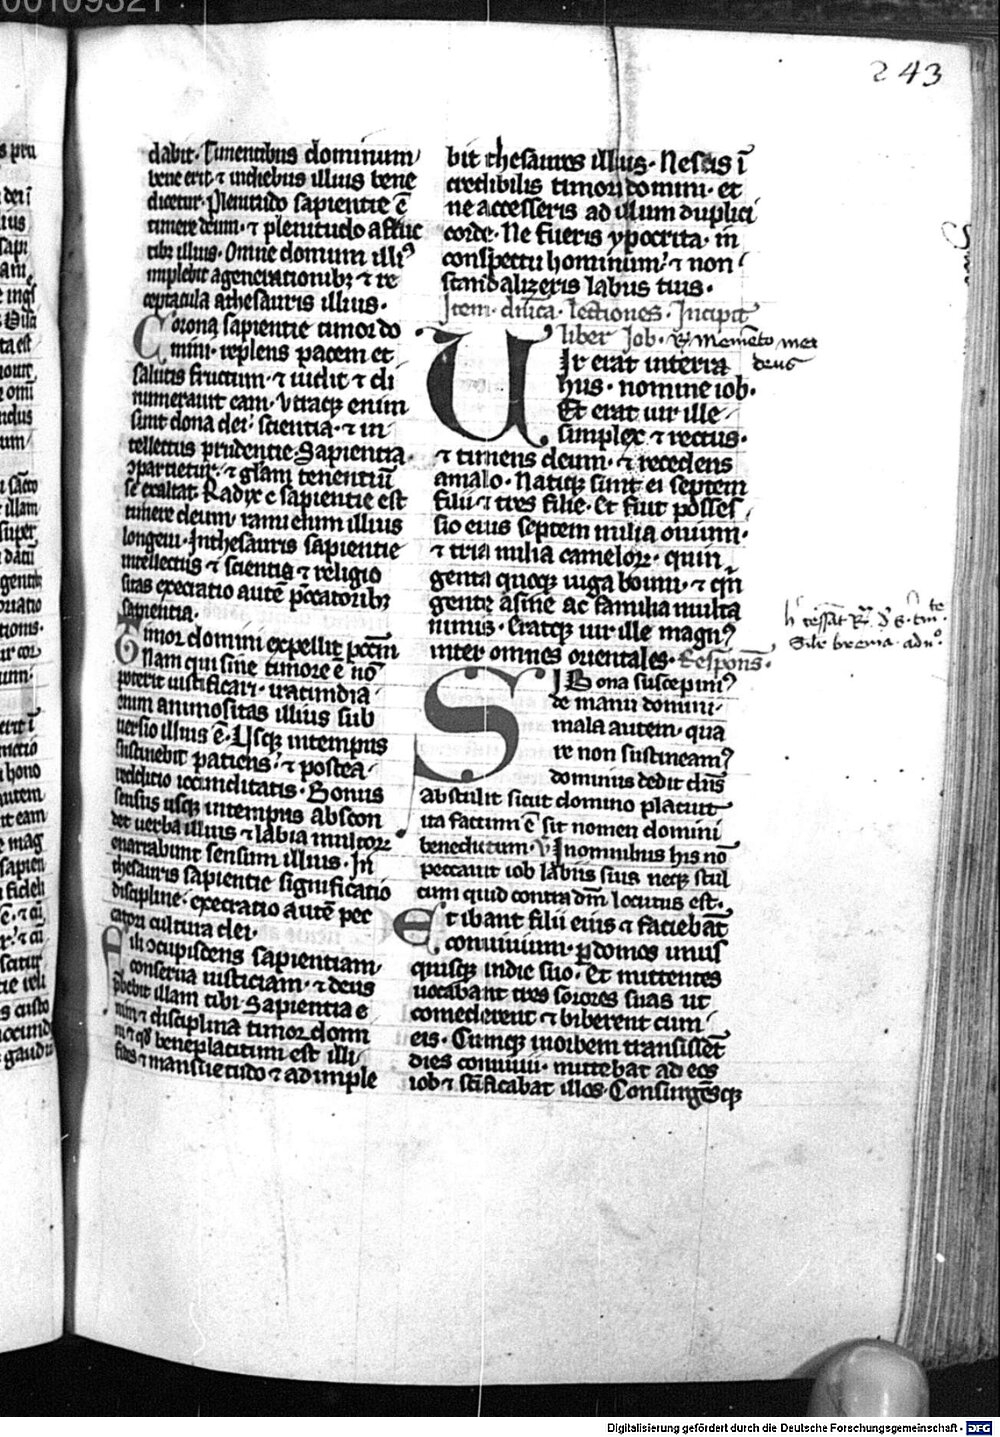 243
dabit. Timentibus dominum
bene erit ⁊ indiebus illius bene
dicetur. Plenitudo sapientie ē
timere deum. ⁊ plenitudo a fruc
tibus illius. Omne domum illi⁹
implebit agenerationibꝫ ⁊ re
ceptacula athesauris illius.
Corona sapientie timor do
mini. replens pacem et
salutis fructum. ⁊ uidit ⁊ di
numerauit eam. Vtraqꝫ enim
sunt dona dei. scientia. ⁊ in
tellectus prudentie Sapientia
ꝯpartietur. ⁊ gl̄am tenentiū
se exaltat. Radix ē sapientie est
timere deum. rami enim illius
longeui. Inthesauris sapientie
intellectus ⁊ scientia ⁊ religio
sitas execratio autē p̄ccatoribꝫ
sapientia.
Timor domini expellit pccm̄
Nam qui sine timore ē nō
poterit iustificari. iracundia
enim animositas illius sub
uersio illius ē. Usqꝫ intempus
sustinebit patiens. ⁊ postea
redditio iocunditatis. Bonus
sensus usqꝫ intempus abscon
det uerba illius ⁊ labia multoꝝ
enarrabunt sensum illius. In
thesauris sapientie significatio
discipline. execratio autē pec
catori cultura dei.
Fili ꝯcupiscens sapientiam
conserua iusticiam. ⁊ deus
p̄bebit illam tibi. Sapientia e
nim ⁊ disciplina timor domi
ni ⁊ qd̄ beneplacitum est illi
fides ⁊ mansuetudo ⁊ adimple
bit thesauros illius. Ne sis ī
credibilis timori domini. et
ne accesseris ad illum duplici
corde. Ne fueris ypocrita. in
conspectu hominum. ⁊ non
scandalizeris labiis tuis.
Item. dn̄ica. lectiones. Incipit
liber Job. ℣ Memēto mei
deus
Uir erat interra
hus. nomine iob.
Et erat uir ille
simplex ⁊ rectus.
⁊ timens deum. ⁊ recedens
amalo. Natiqꝫ sunt ei septem
filii ⁊ tres filie. Et fuit posses
sio eius septem milia ouium.
⁊ tria milia cameloꝝ. quin
genta quoqꝫ iuga boum. ⁊ qn̄
gente asine ac familia multa
nimis. Eratqꝫ uir ille magn⁹
inter omnes orientales. Respons̄.
SI Bona suscepim⁹
de manu domini.
mala autem. qua
re non sustineam⁹
dominus dedit dn̄s
abstulit sicut domino placuit
ita factum ē sit nomen domini
benedictum. ℣ Inomnibus his nō
peccauit iob labiis suis neqꝫ stul
tum quid contra dm̄ locutus est.
Et ibant filii eius ⁊ faciebāt
conuiuium. ꝑdomos unus
quisqꝫ indie suo. Et mittentes
uocabant tres sorores suas ut
comederent ⁊ biberent cum
eis. Cumqꝫ inorbem transissēt
dies conuiuii. mittebat ad eos
iob ⁊ sc̄ificabat illos. Consurgēsqꝫ
Digitalisierung gefördert durch die Deutsche Forschungsgemeinschaft - DFG